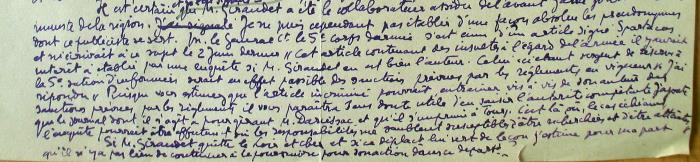 Il est certain que M. Siraudet a été le collaborateur assidu de l'avant
de la région. Je ne puis cependant pas établir d'une façon absolue les pseudonymes
dont ce publiciste se sert. M. le Général Ct le 5e Corps d'armée s'est ému d'un article signé
m'écrivait à ce sujet le 2 juin dernier « Cet article contenant des insultes à l'égard de l'armée il y aurait
intérêt à établir par une enquête si M. Siraudet en est bien l'auteur. Celui-ci étant sergent de réserve à
la 5e section d'infirmiers serait en effet passible des sanctions prévues par les règlements en vigueur » J'ai
répondu « Puisque vous estimez que l'article incriminé pourrait entraîner vis à vis de son auteur des
sanctions prévues par les règlements il vous paraîtra sans doute utile d'en saisir l'autorité compétente. J'ajoute
que le journal dont il s'agit a pour gérant M. et qu'il s'imprime à Tours. C'est là où, le cas échéant
l'enquête pourrait être effectuée si les responsabilités me semblent susceptibles d'être recherchées et d'être atteintes
Si M. Siraudet quitte le Loir et Cher et si ce déplacement j'estime pour ma part
qu'il n'y a pas lieu de continuer à le poursuivre pour son action dans ce départ.